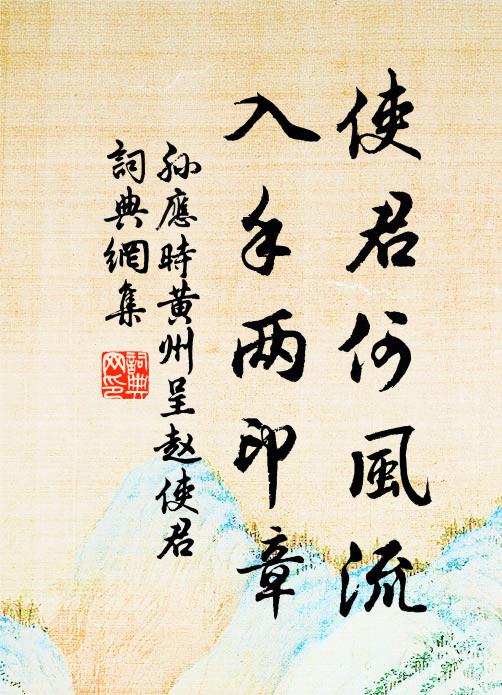 使君何風流
入手两印章
孙應時黄州呈赵使君
詞典網集
詞典网印